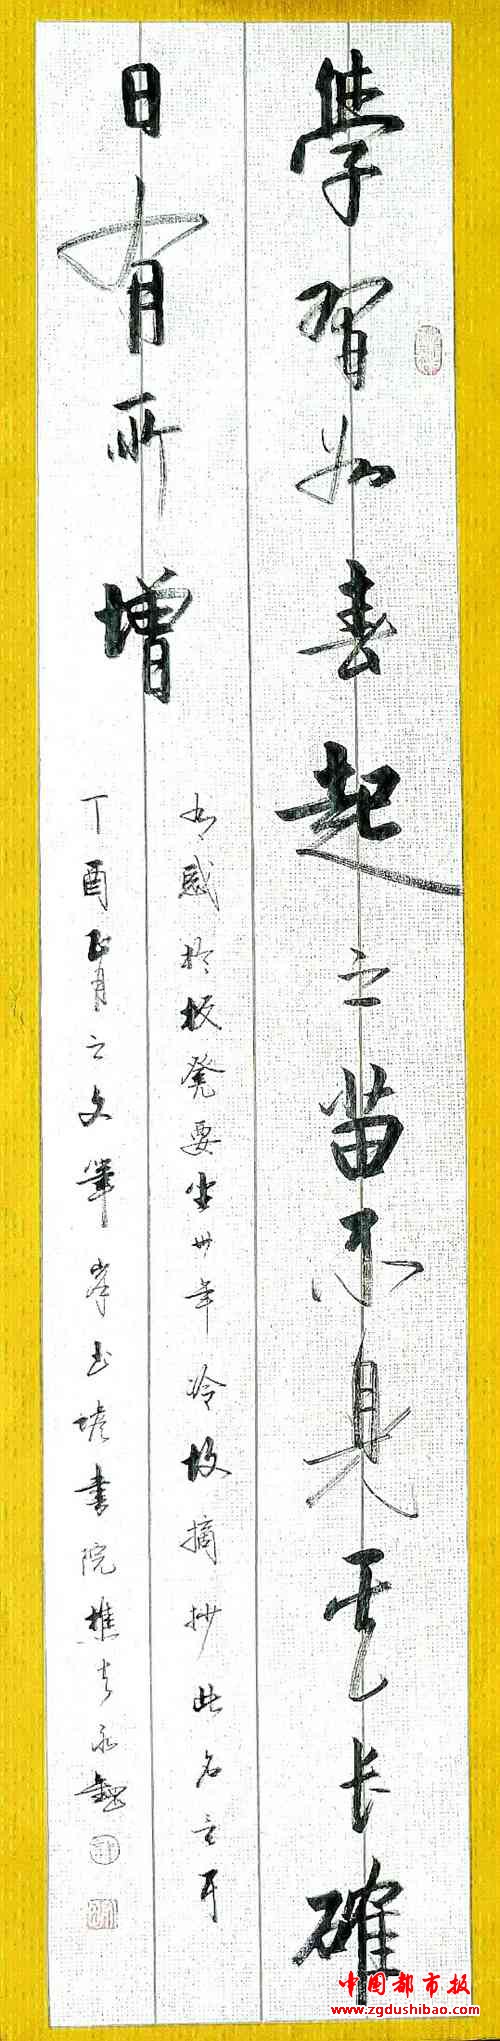 學習如春起之苗不見其长確
日有所增
感於板凳要坐卅年冷故摘抄此名言耳
丁酉正月之文筆峯玉塘書院樵夫永
中国都市报
www.zgdushibao.com